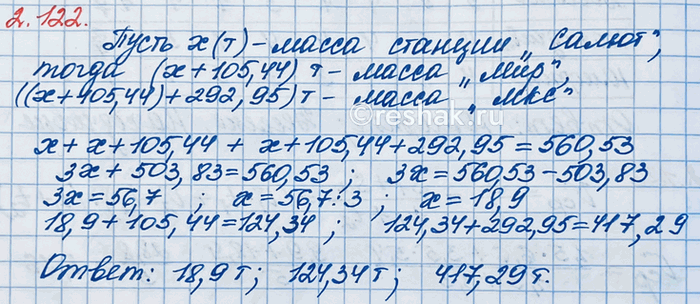 2.122.
Пусть x(т) - масса станции „Салют",
тогда (x+105,44) т - масса „Мир",
((x+105,44)+292,95) т - масса „МКС"
© reshak.ru
x + x+105,44 + x+105,44+292,95=560,53
3x + 503,83=560,53 ; 3x=560,53-503,83
3x=56,7 ; x=56,7:3 ; x=18,9
18,9+105,44=124,34 ; 124,34+292,95=417,29
Ответ: 18,9 т; 124,34 т; 417,29 т.